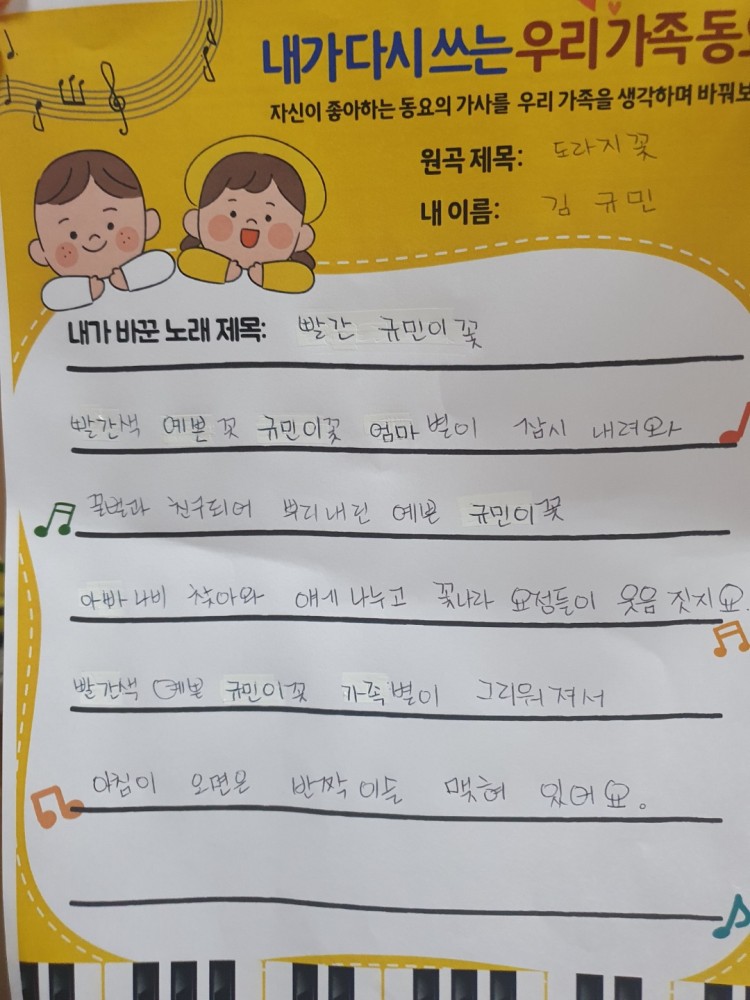 내가 다시 쓰는 우리 가족 동요
자신이 좋아하는 동요의 가사를 우리 가족을 생각하며 바꿔보
원곡 제목: 도라지꽃
내 이름: 김 규민
내가 바꾼 노래 제목: 빨간 규민이꽃
빨간색 예쁜 꽃 규민이꽃 엄마별이 잠시 내려와
꿀벌과 친구되어 뿌리내린 예쁜 규민이꽃
아빠나비 찾아와 얘기 나누고 꽃나라 요정들이 웃음 짓지요.
빨간색 예쁜 규민이꽃 가족별이 그리워져서
아침이 오면은 반짝 이슬 맺혀 있어요.